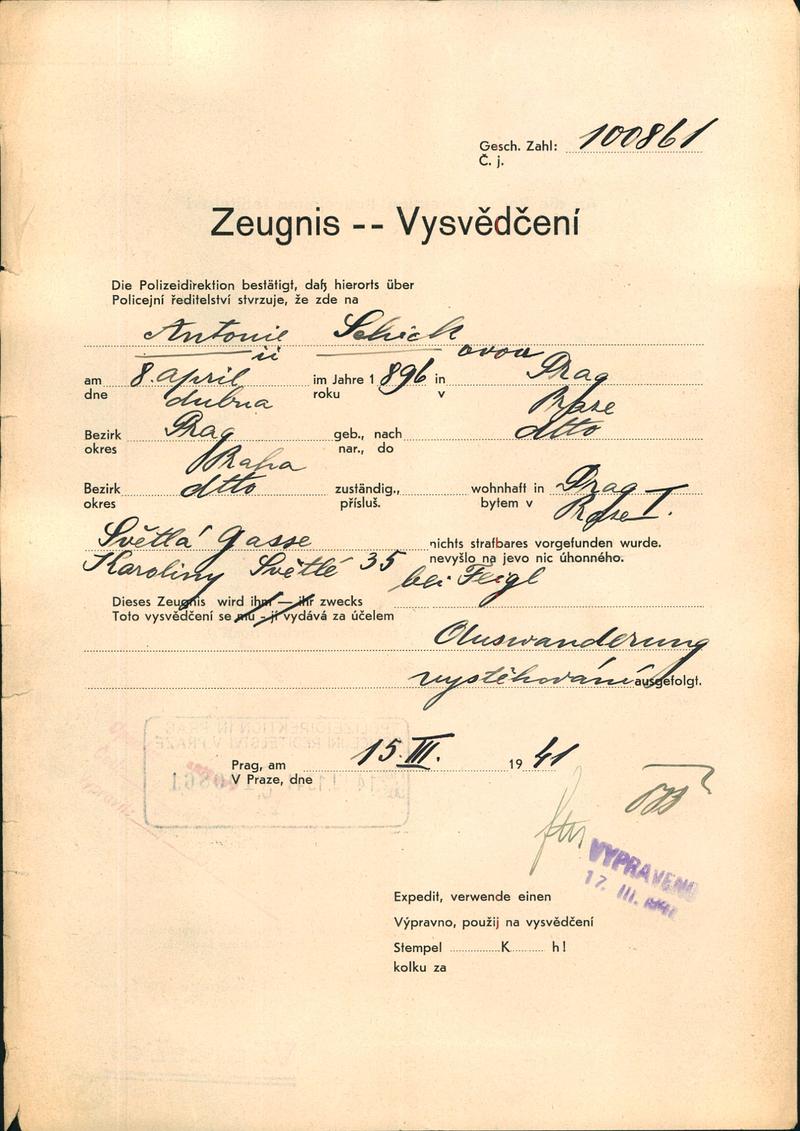 Gesch. Zahl: 100861
Č. j.
Zeugnis -- Vysvědčení
Die Polizeidirektion bestätigt, daß hierorts über
Policejní ředitelství stvrzuje, že zde na
Antonie Schick
ii ovou
am 8. april im Jahre 1 896 in Prag
dne dubna roku v Praze
Bezirk Prag geb., nach dtto
okres Praha nar., do
Bezirk dtto zuständig., wohnhaft in Prag
okres přísluš. bytem v Praze I.
Světlá gasse nichts strafbares vorgefunden wurde.
Karoliny Světlé 35 nevyšlo na jevo nic úhonného.
bei Feigl
Dieses Zeugnis wird ihm — ihr zwecks
Toto vysvědčení se mu - jí vydává za účelem
Auswanderung
vystěhování ausgefolgt.
Prag, am 15. III. 19 41
V Praze, dne
VYPRAVENO
17. III. 1941
Expedit, verwende einen
Výpravno, použij na vysvědčení
Stempel K h!
kolku za